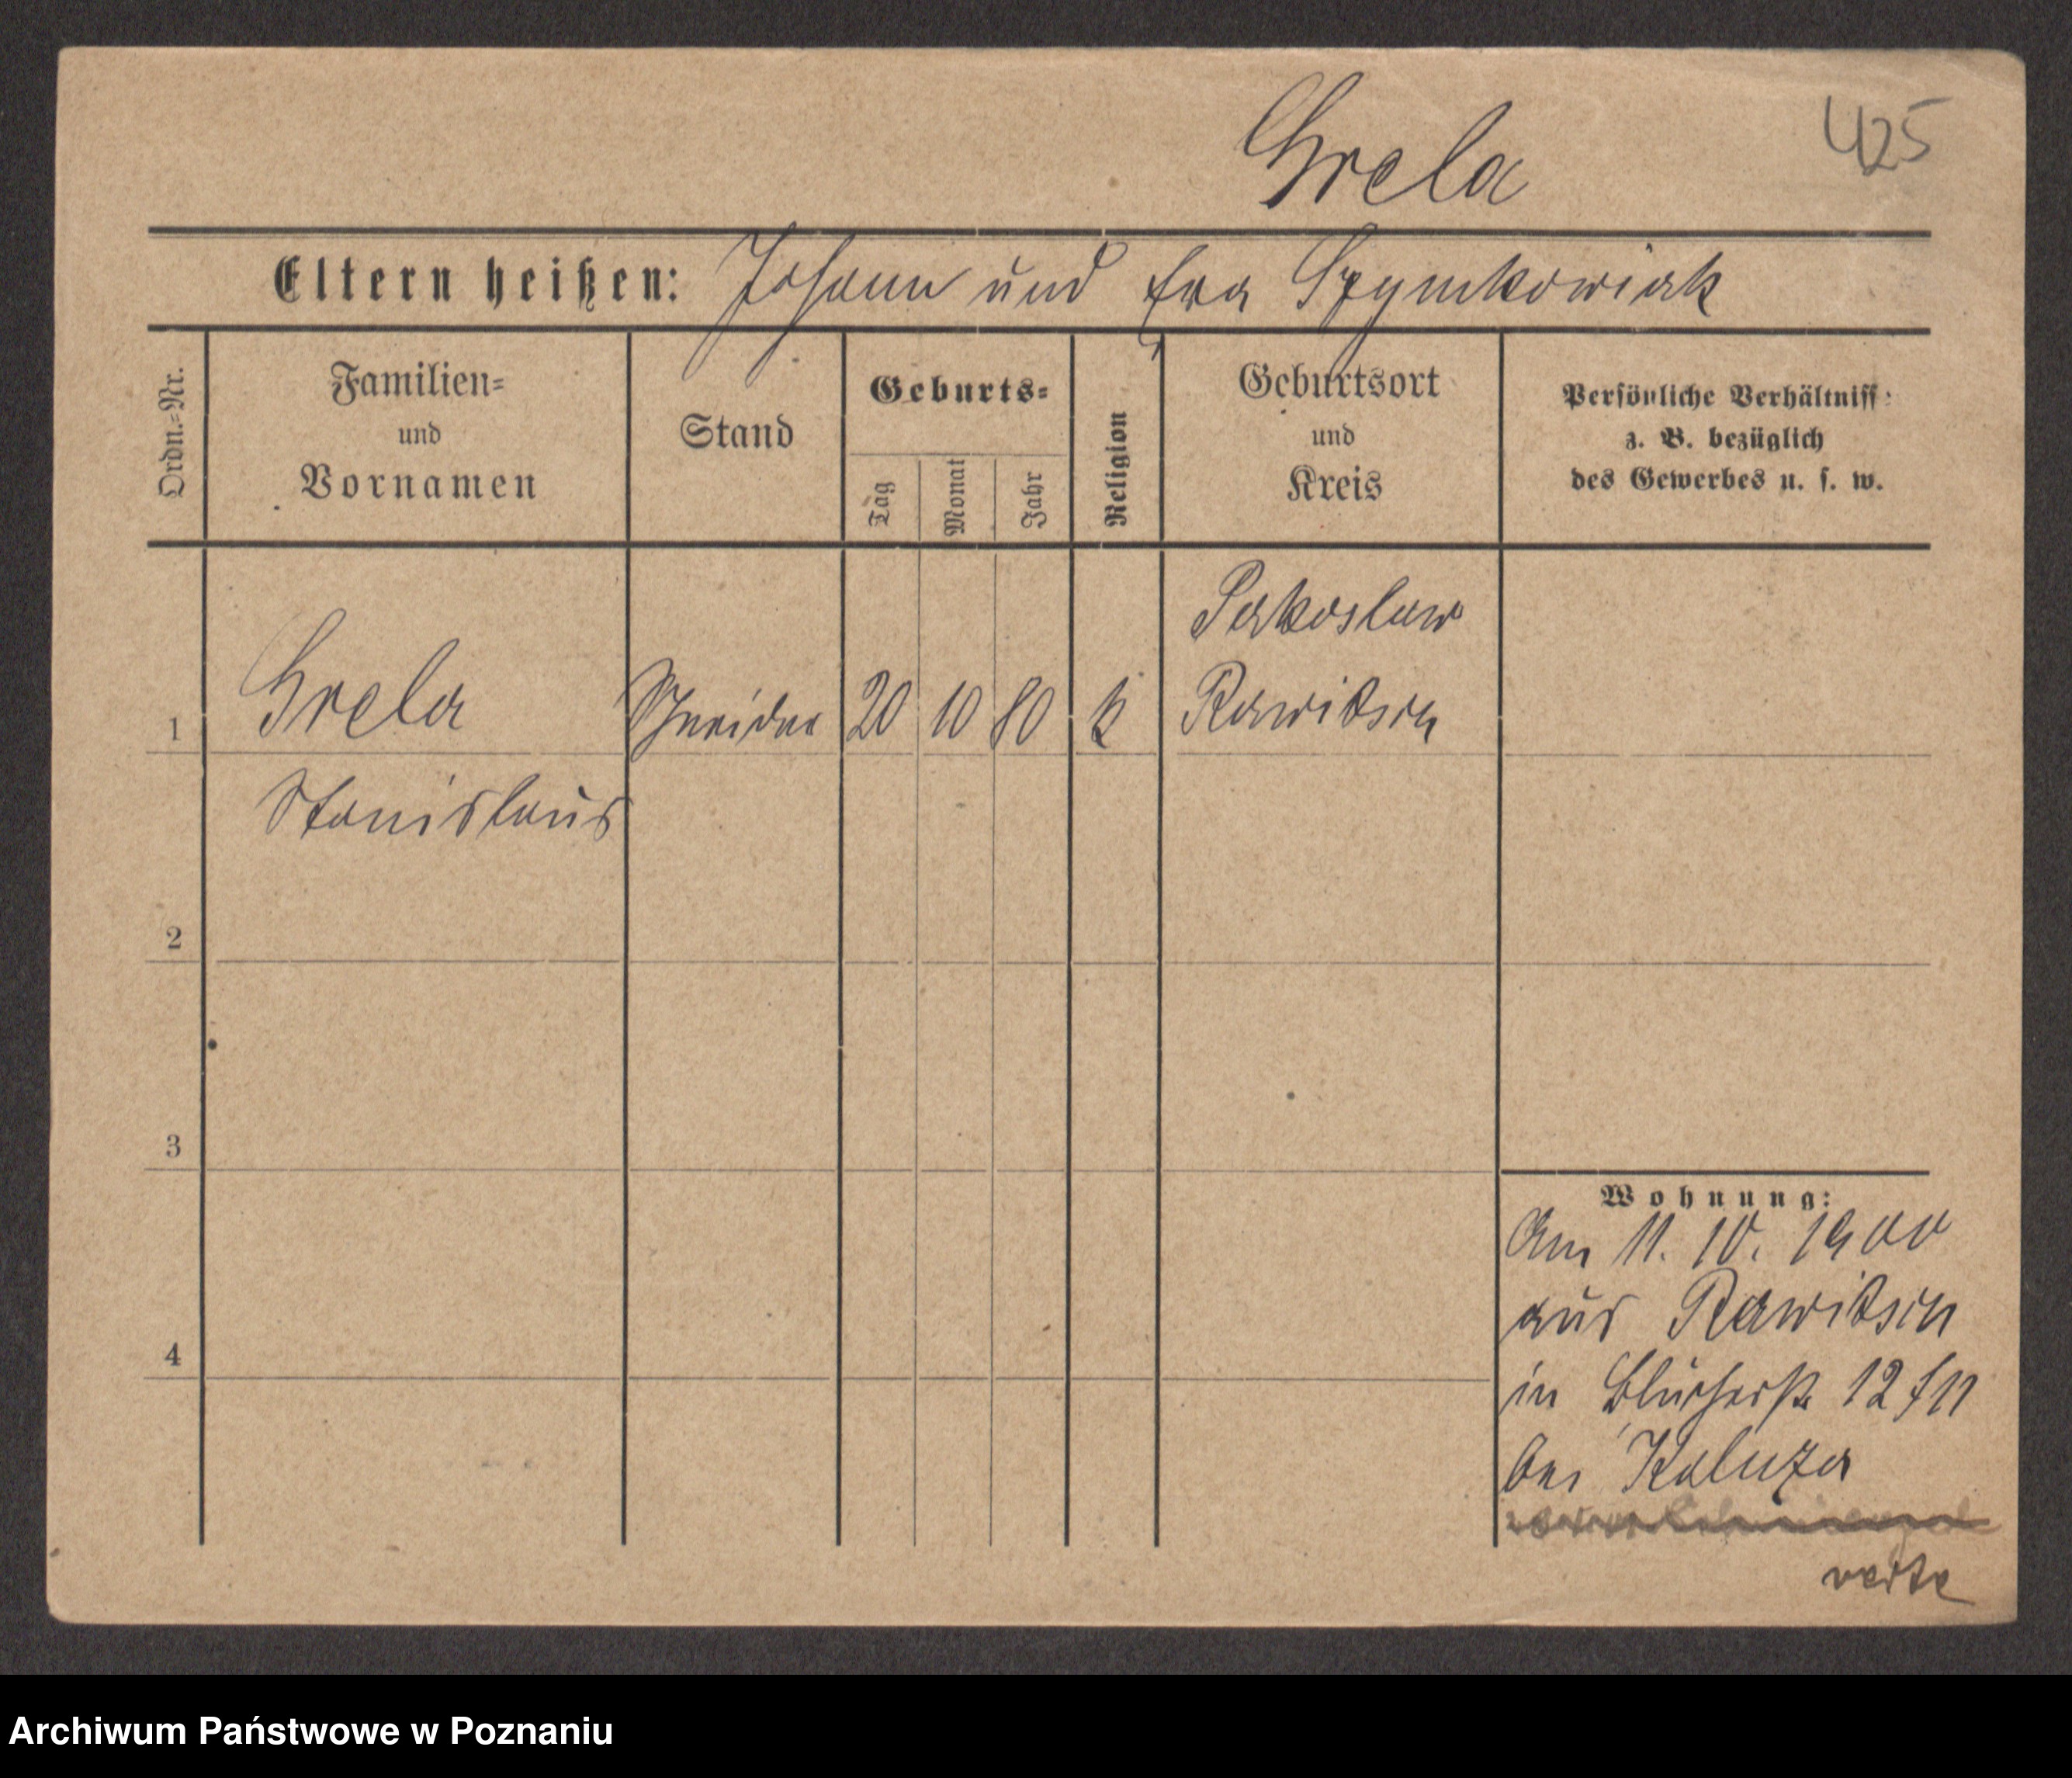 Grela
425
Eltern heißen: Johann und Eva Szymkowiak
Ordn.-Nr.
Familien-
und
Vornamen
Stand
Geburts-
Tag
Monat
Jahr
Religion
Geburtsort
und
Kreis
Persönliche Verhältniss
z. B. bezüglich
des Gewerbes u. s. w.
Pakoslaw
1 Grela Schneider 20 10 80 k Rawitsch
Stanislaus
2
3
4
Wohnung:
Am 11. 10. 1900
aus Rawitsch
in Blücherstr. 12
bei Kaluza
verte
Archiwum Państwowe w Poznaniu